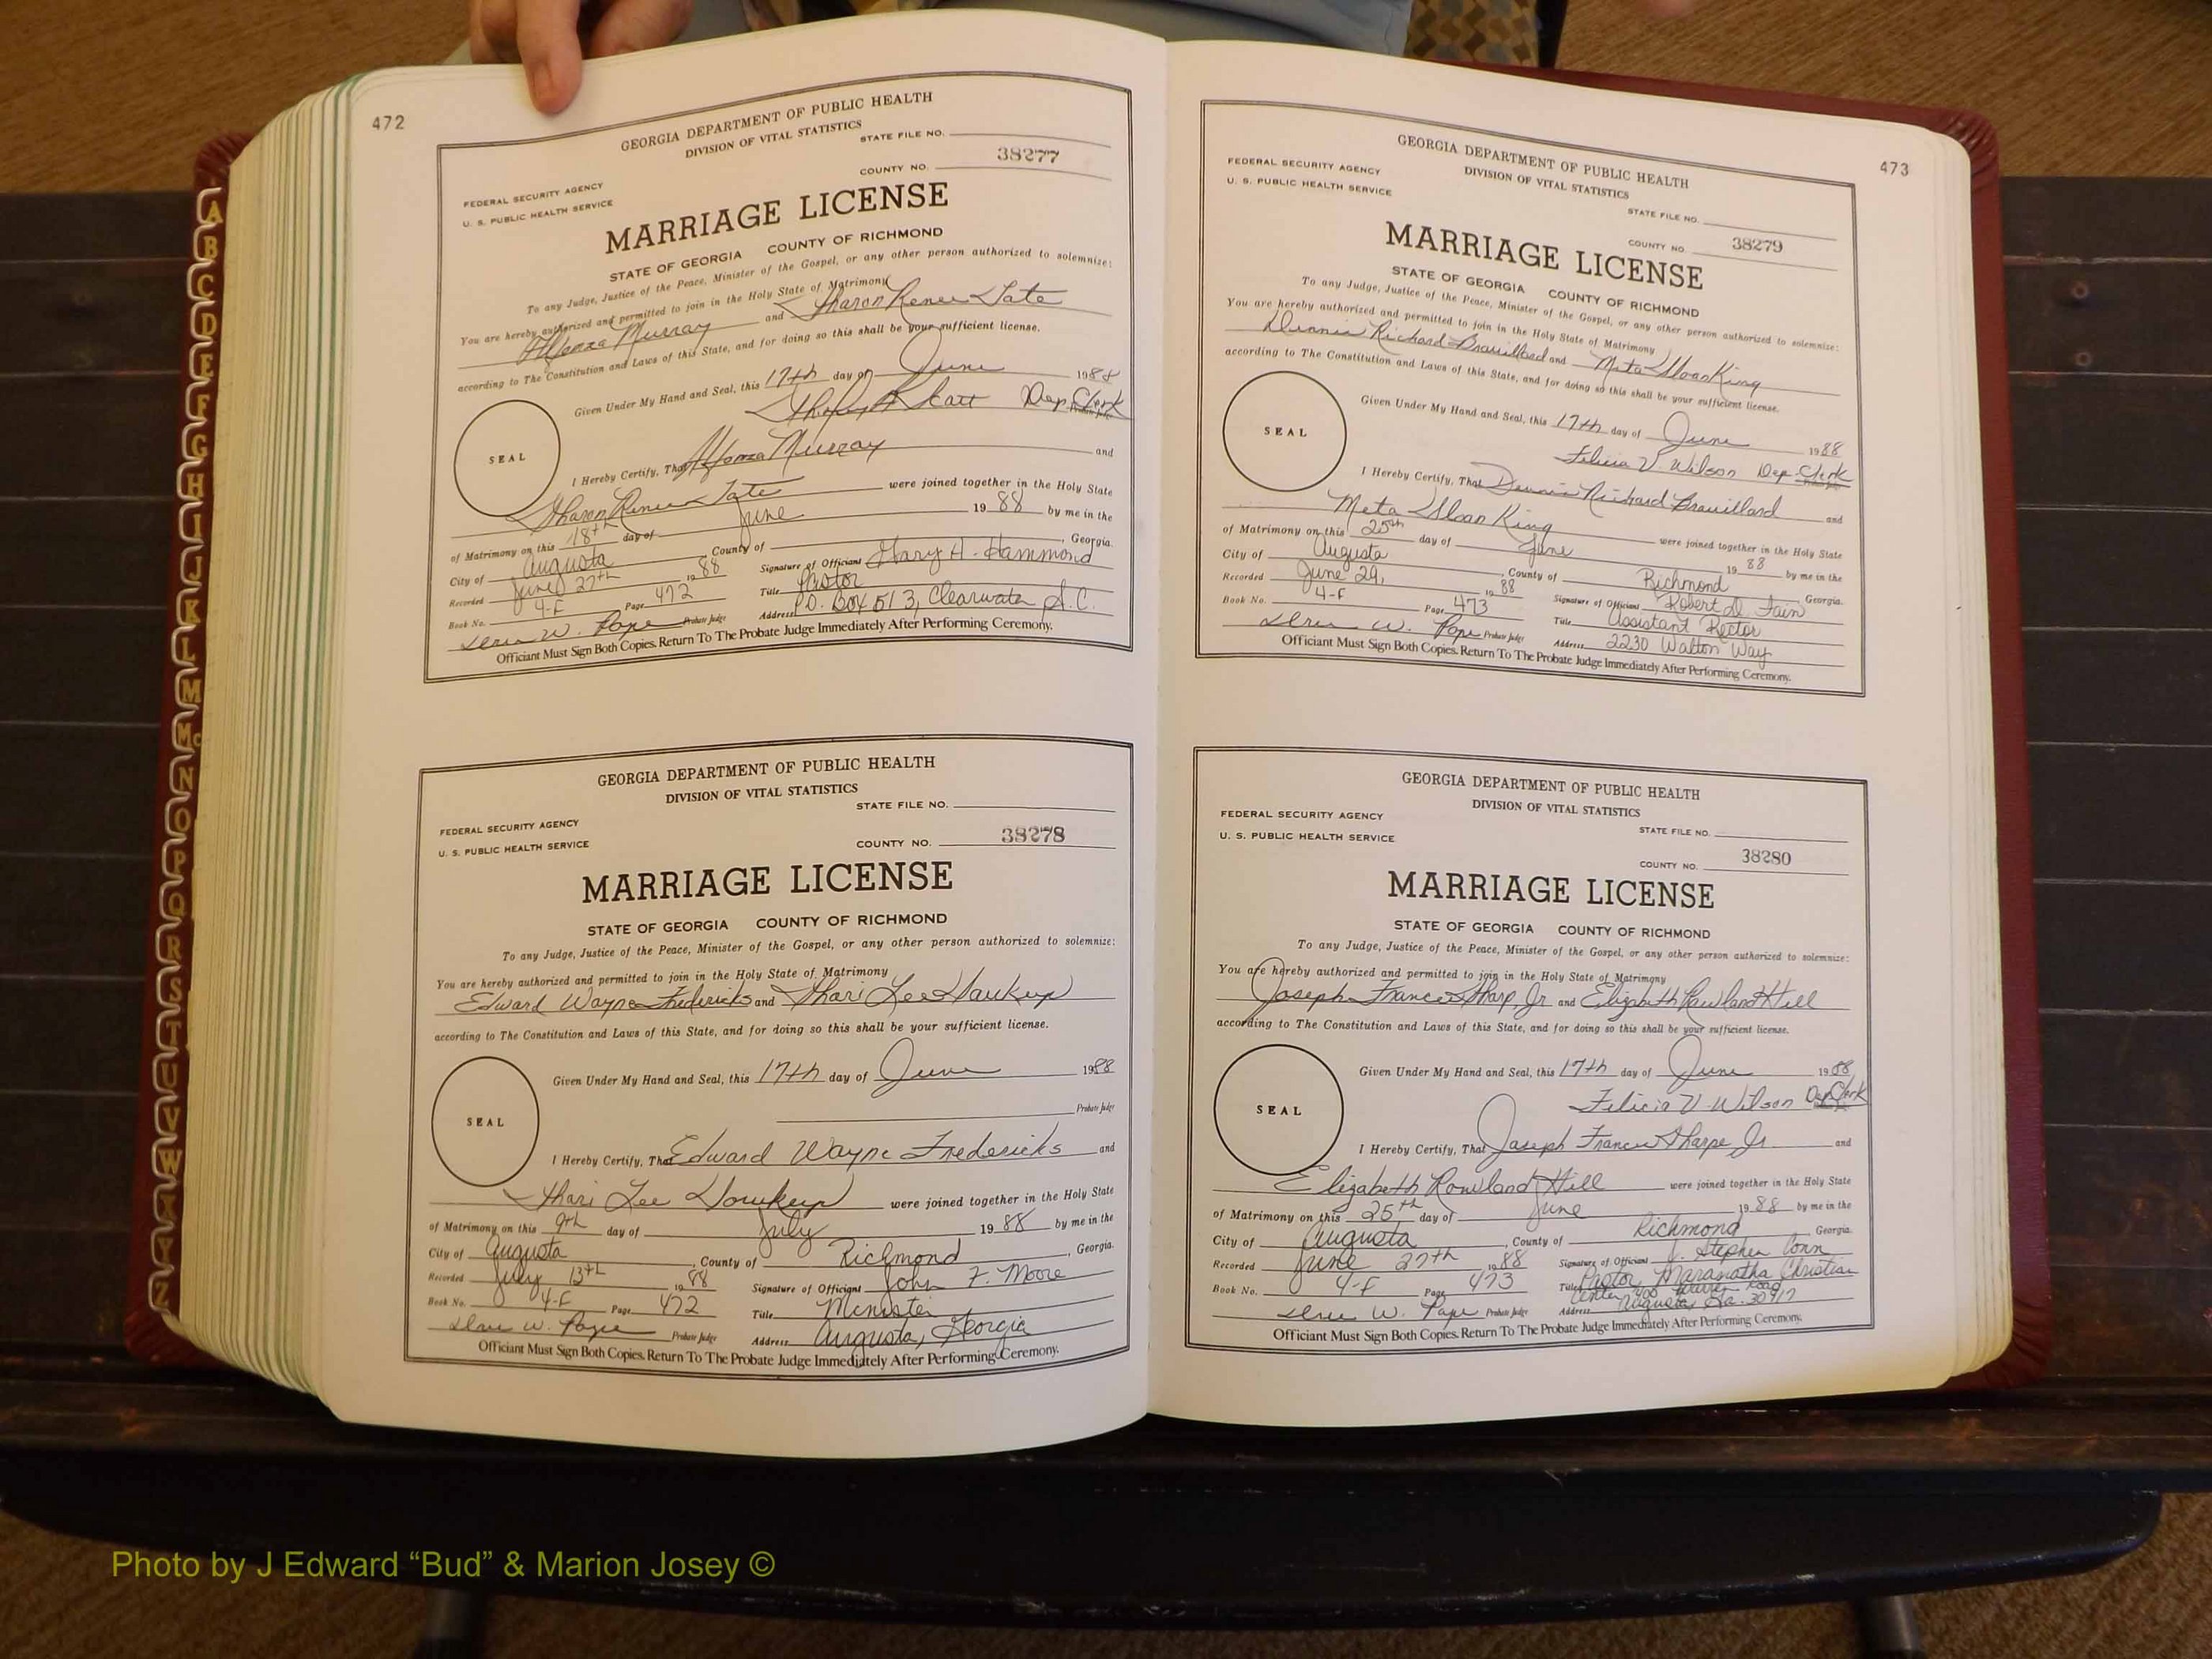 472
GEORGIA DEPARTMENT OF PUBLIC HEALTH
DIVISION OF VITAL STATISTICS
STATE FILE NO.
COUNTY NO. 38277
FEDERAL SECURITY AGENCY
U. S. PUBLIC HEALTH SERVICE
MARRIAGE LICENSE
STATE OF GEORGIA COUNTY OF RICHMOND
To any Judge, Justice of the Peace, Minister of the Gospel, or any other person authorized to solemnize:
You are hereby authorized and permitted to join in the Holy State of Matrimony
Alfonza Murray and Sharon Renee Tate
according to The Constitution and Laws of this State, and for doing so this shall be your sufficient license.
Given Under My Hand and Seal, this 17th day of June 1988
Scott Dep. Clerk
Probate Judge
SEAL
I Hereby Certify, That Alfonza Murray and
Sharon Renee Tate were joined together in the Holy State
of Matrimony on this 18th day of June 19 88 by me in the
City of Augusta County of , Georgia.
Recorded June 27th 19 88 Signature of Officiant Mary A. Hammond
Book No. 4-F Page 472 Title Pastor
W. Pope Probate Judge Address P.O. Box 513, Clearwater S.C.
Officiant Must Sign Both Copies. Return To The Probate Judge Immediately After Performing Ceremony.
GEORGIA DEPARTMENT OF PUBLIC HEALTH
DIVISION OF VITAL STATISTICS
STATE FILE NO.
FEDERAL SECURITY AGENCY
U. S. PUBLIC HEALTH SERVICE
COUNTY NO. 38278
MARRIAGE LICENSE
STATE OF GEORGIA COUNTY OF RICHMOND
To any Judge, Justice of the Peace, Minister of the Gospel, or any other person authorized to solemnize:
You are hereby authorized and permitted to join in the Holy State of Matrimony
Edward Wayne Fredericks and Shari Lee Soukup
according to The Constitution and Laws of this State, and for doing so this shall be your sufficient license.
Given Under My Hand and Seal, this 17th day of June 1988
Probate Judge
SEAL
I Hereby Certify, That Edward Wayne Fredericks and
Shari Lee Soukup were joined together in the Holy State
of Matrimony on this 9th day of July 19 88 by me in the
City of Augusta , County of Richmond , Georgia.
Recorded July 13th 19 88 Signature of Officiant John F. Moore
Book No. 4-F Page 472 Title Minister
W. Pope Probate Judge Address Augusta, Georgia
Officiant Must Sign Both Copies. Return To The Probate Judge Immediately After Performing Ceremony.
473
GEORGIA DEPARTMENT OF PUBLIC HEALTH
DIVISION OF VITAL STATISTICS
FEDERAL SECURITY AGENCY
U. S. PUBLIC HEALTH SERVICE
STATE FILE NO.
COUNTY NO. 38279
MARRIAGE LICENSE
STATE OF GEORGIA COUNTY OF RICHMOND
To any Judge, Justice of the Peace, Minister of the Gospel, or any other person authorized to solemnize:
You are hereby authorized and permitted to join in the Holy State of Matrimony
Dennis Richard Brouillard and Meta Sloan King
according to The Constitution and Laws of this State, and for doing so this shall be your sufficient license.
Given Under My Hand and Seal, this 17th day of June 1988
Felicia V. Wilson Dep. Clerk
SEAL
I Hereby Certify, That Dennis Richard Brouillard and
Meta Sloan King were joined together in the Holy State
of Matrimony on this 25th day of June 19 88 by me in the
City of Augusta , County of Richmond Georgia.
Recorded June 29, 19 88 Signature of Officiant Robert D. Fain
Book No. 4-F Page 473 Title Assistant Rector
W. Pope Probate Judge Address 2230 Walton Way
Officiant Must Sign Both Copies. Return To The Probate Judge Immediately After Performing Ceremony.
GEORGIA DEPARTMENT OF PUBLIC HEALTH
DIVISION OF VITAL STATISTICS
FEDERAL SECURITY AGENCY
U. S. PUBLIC HEALTH SERVICE
STATE FILE NO.
COUNTY NO. 38280
MARRIAGE LICENSE
STATE OF GEORGIA COUNTY OF RICHMOND
To any Judge, Justice of the Peace, Minister of the Gospel, or any other person authorized to solemnize:
You are hereby authorized and permitted to join in the Holy State of Matrimony
Joseph Francis Sharp, Jr and Elizabeth Rowland Hill
according to The Constitution and Laws of this State, and for doing so this shall be your sufficient license.
Given Under My Hand and Seal, this 17th day of June 1988
Felicia V. Wilson Dep Clerk
SEAL
I Hereby Certify, That Joseph Francis Sharpe Jr and
Elizabeth Rowland Hill were joined together in the Holy State
of Matrimony on this 25th day of June 19 88 by me in the
City of Augusta , County of Richmond Georgia.
Recorded June 27th 19 88 Signature of Officiant J. Stephen Conn
Book No. 4-F Page 473 Title Pastor, Maranatha Christian
Center Road
W. Pope Probate Judge Address Augusta, Ga. 30917
Officiant Must Sign Both Copies. Return To The Probate Judge Immediately After Performing Ceremony.
A
B
C
D
E
F
G
H
I
J
K
L
M
Mc
N
O
P
Q
R
S
T
U
V
W
X
Y
Z
Photo by J Edward “Bud” & Marion Josey ©